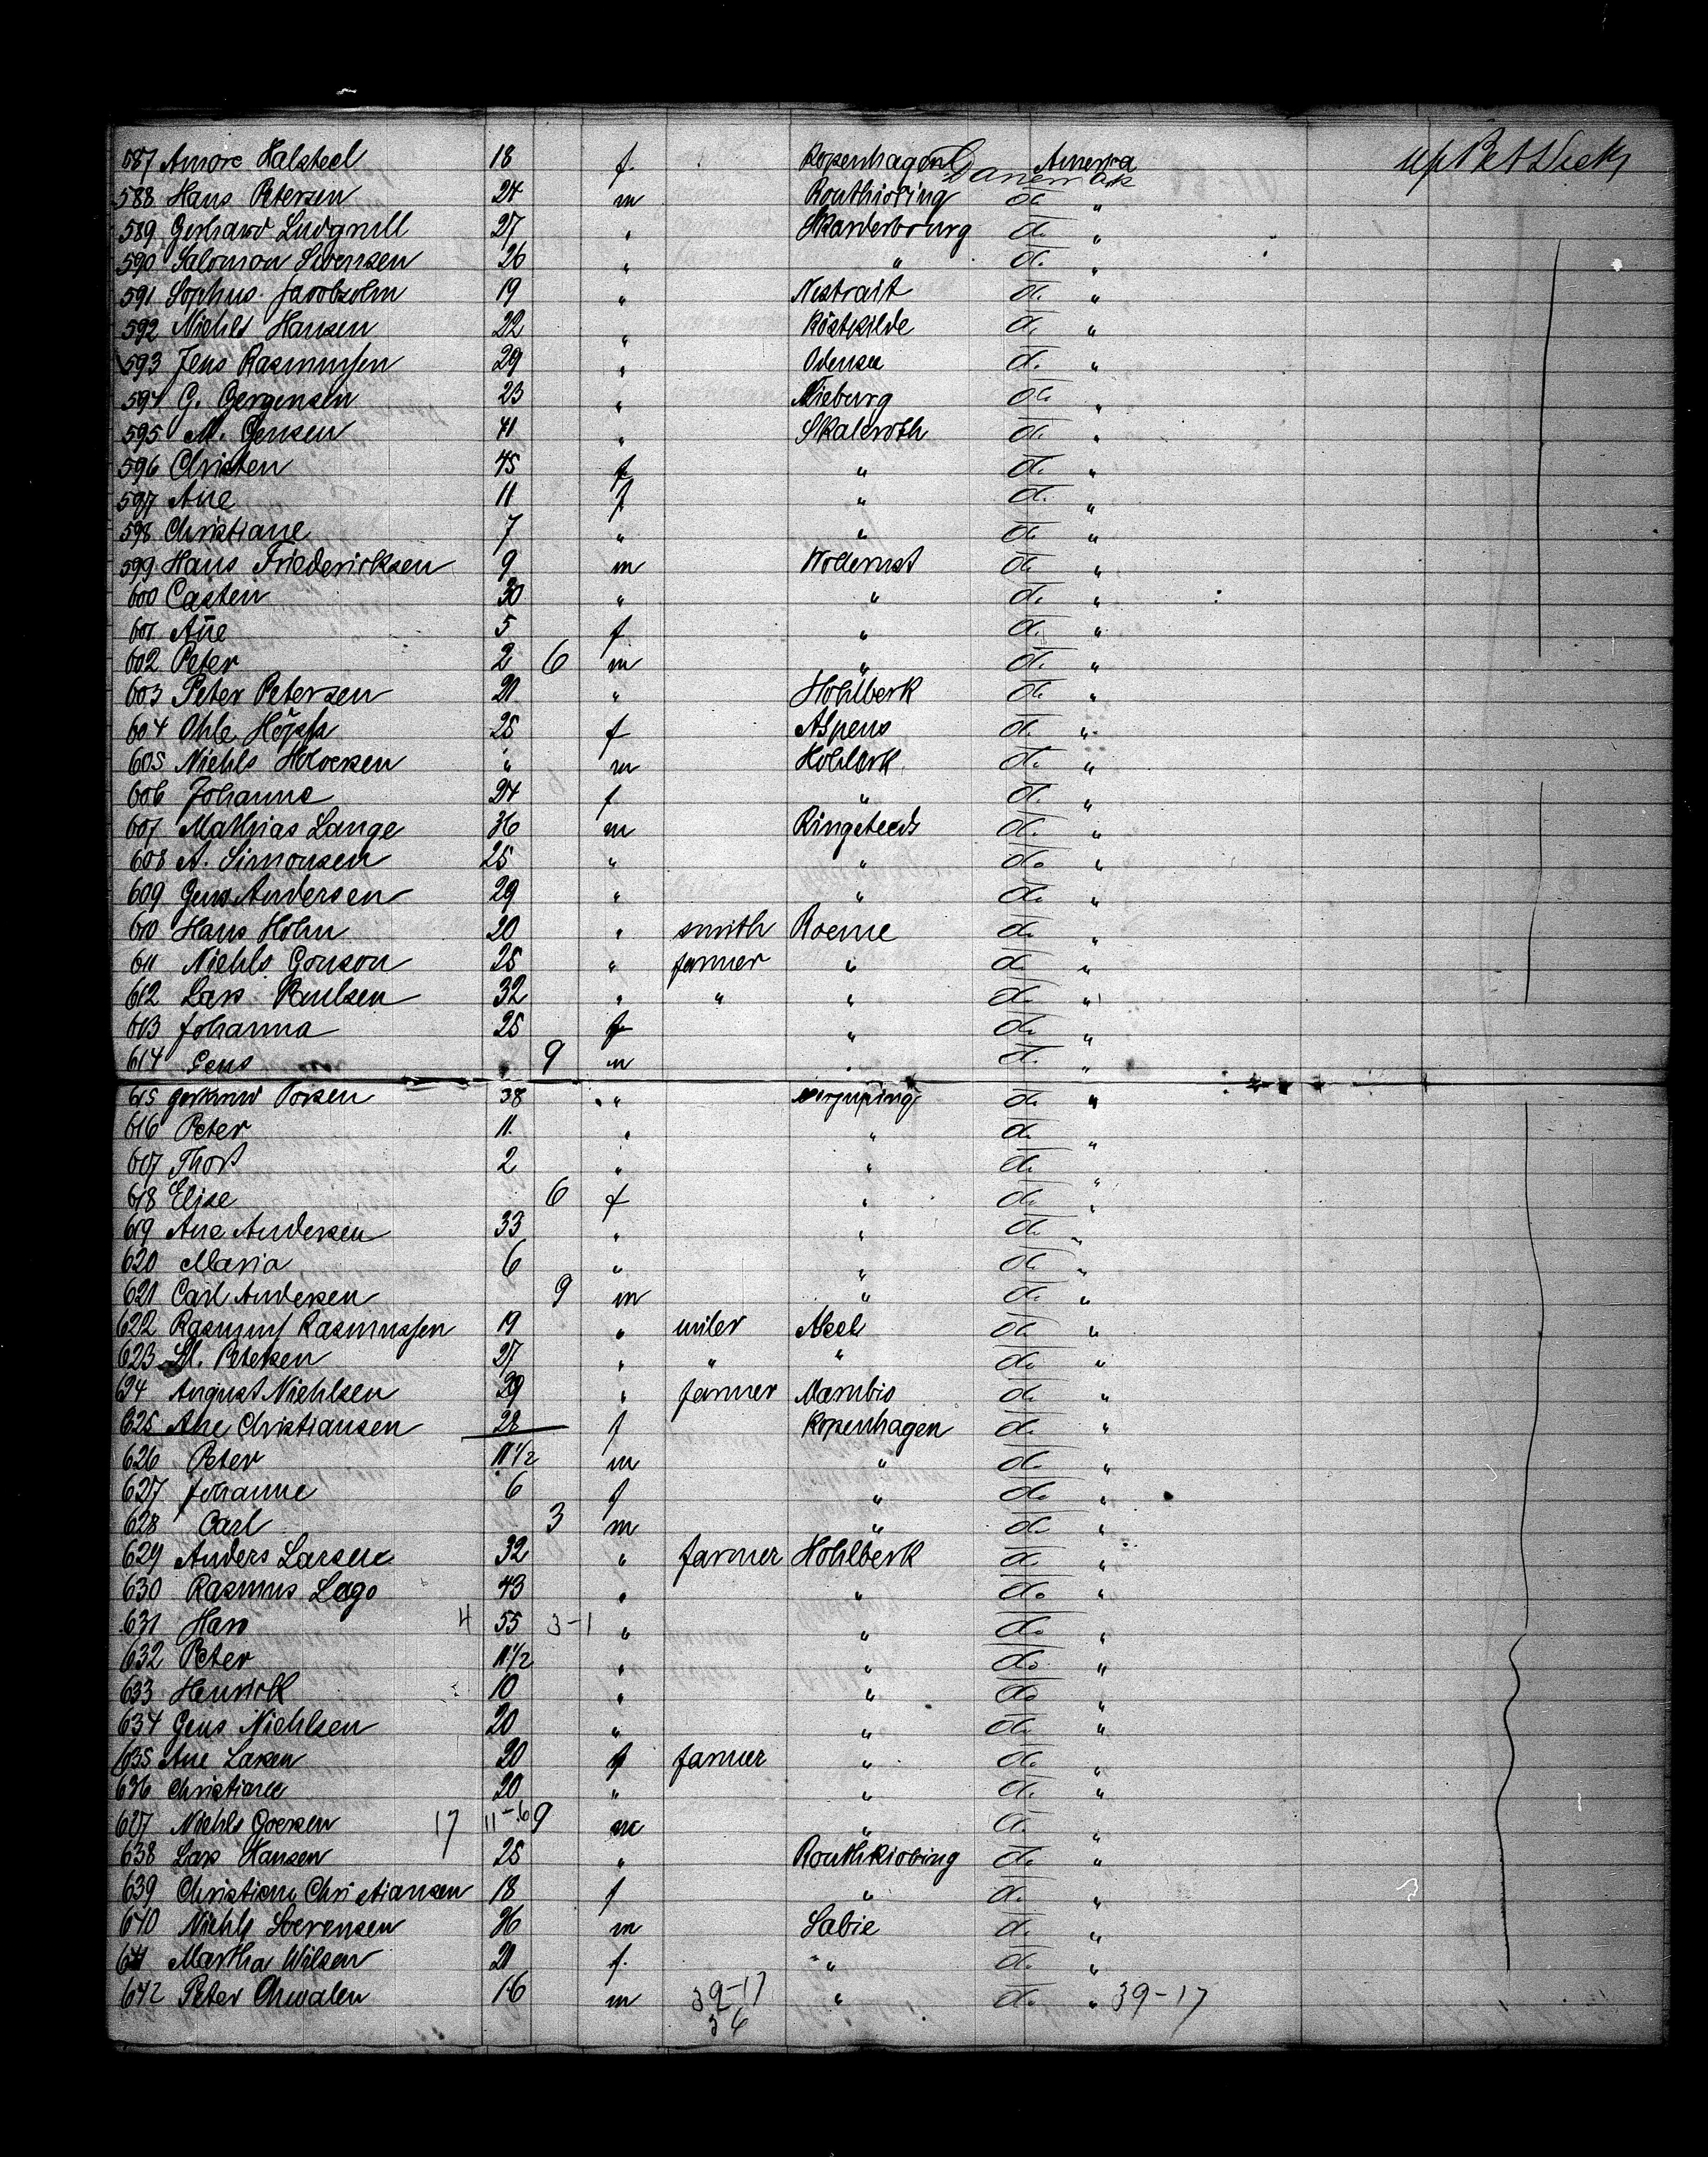 587 Amore Halsteel 18 f. Kopenhagen Danemark America up Bet Deck
588 Hans Petersen 24 m Routhioring do "
589 Gerhard Ludgrull 27 " Skanderbourg do "
590 Salomon Swensen 26 " " do "
591 Sophus Jacobsohn 19 " Nestrait do "
592 Niehls Hansen 22 " Röskilde do "
593 Jens Rasmussen 29 " Odensee do "
594 G. Gergensen 23 " Nieburg do "
595 M. Gensen 41 " Skalsroth do "
596 Christen 45 f " do "
597 Ane 11 f " do "
598 Christiane 7 " " do "
599 Hans Friedericksen 9 m Wodernst do "
600 Casten 30 " " do "
601 Ane 5 f " do "
602 Peter 2 6 m " do "
603 Peter Petersen 21 " Hohlberk do "
604 Ohle 25 f Aspens do "
605 Niehls " m Hohlberk do "
606 Johanne 24 f " do "
607 Mathias Lange 36 m Ringsteeds do "
608 A. Simonsen 25 " " do "
609 Gens Andersen 29 " " do "
610 Hans Hohn 20 " smith Roeme do "
611 Niehls Gonson 25 " farmer " do "
612 Lars Paulsen 32 " " " do "
613 Johanna 25 f " do "
614 Gens " 9 m " do "
615 38 " do "
616 Peter 11 " " do "
617 Thost 2 " " do "
618 Elise 6 f " do "
619 Ane Andersen 33 " " do "
620 Maria 6 " " do "
621 Carl Andersen 9 m " do "
622 Rasmus Rasmussen 19 " miler do "
623 Petersen 27 " " " do "
24 August Niehlsen 29 " farmer Mambio do "
625 Ane Christiansen 28 f Kopenhagen do "
626 Peter 11 1/2 m " do "
627 Johanne 6 f " do "
628 Carl 3 m " do "
629 Anders Larsen 32 " farmer Hohlberk do "
630 Rasmus Lago 43 " " do "
631 Hans 4 55 3-1 " " do "
632 Peter 11 1/2 " " do "
633 Henrick 10 " " do "
634 Gens Niehlsen 20 " " do "
635 Ane Larsen 20 f farmer " do "
636 Christiane 20 " " do "
627 Niehls 17 11-6 9 m " do "
638 Lars Hansen 25 " Routhkiobing do "
639 Christiane Christiansen 18 f " do "
640 Niehls Soerensen 26 m Sabie do "
641 Martha Wilsen 21 f. " do "
642 Peter 16 m 39-17 " do " 39-17
36